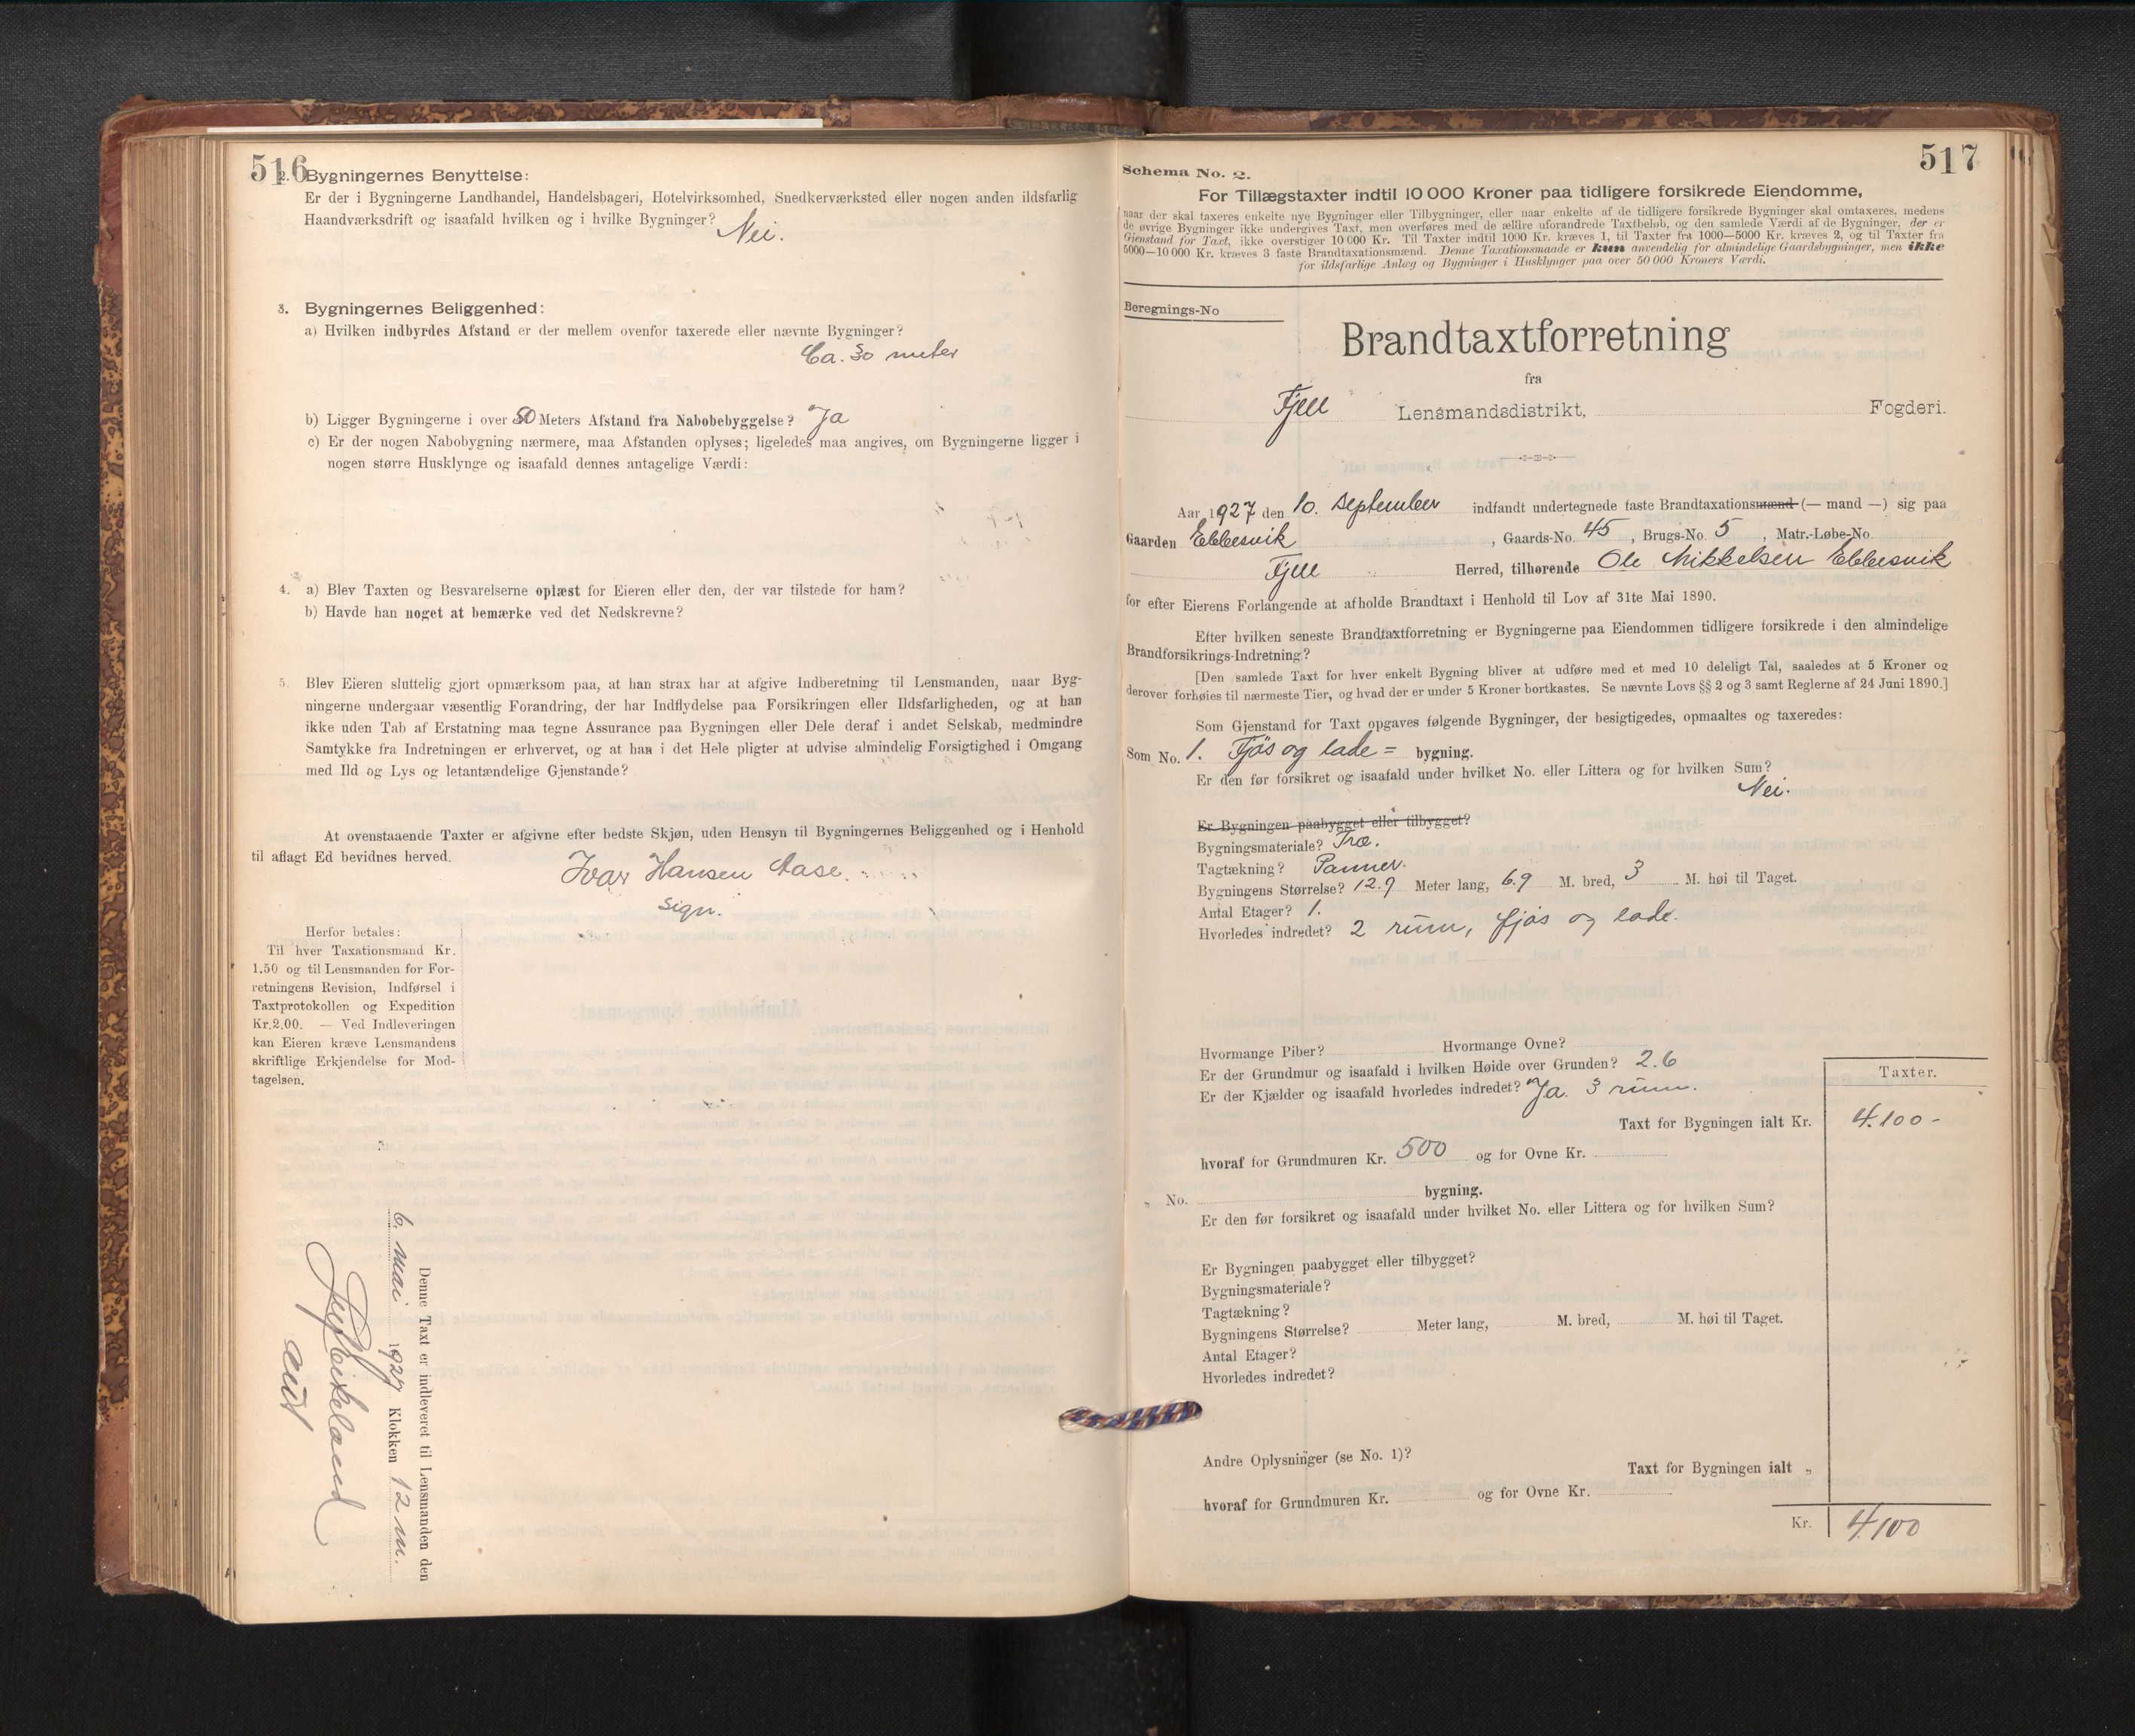 516
2. Bygningernes Benyttelse:
Er der i Bygningerne Landhandel, Handelsbageri, Hotelvirksomhed, Snedkerværksted eller nogen anden ildsfarlig
Haandværksdrift og isaafald hvilken og i hvilke Bygninger? Nei.
3. Bygningernes Beliggenhed:
a) Hvilken indbyrdes Afstand er der mellem ovenfor taxerede eller nævnte Bygninger?
Ca. 30 meter
b) Ligger Bygningerne i over 50 Meters Afstand fra Nabobebyggelse? Ja
c) Er der nogen Nabobygning nærmere, maa Afstanden oplyses; ligeledes maa angives, om Bygningerne ligger i
nogen større Husklynge og isaafald dennes antagelige Værdi:
4. a) Blev Taxten og Besvarelserne oplæst for Eieren eller den, der var tilstede for ham?
b) Havde han noget at bemærke ved det Nedskrevne?
5. Blev Eieren sluttelig gjort opmærksom paa, at han strax har at afgive Indberetning til Lensmanden, naar Byg-
ningerne undergaar væsentlig Forandring, der har Indflydelse paa Forsikringen eller Ildsfarligheden, og at han
ikke uden Tab af Erstatning maa tegne Assurance paa Bygningen eller Dele deraf i andet Selskab, medmindre
Samtykke fra Indretningen er erhvervet, og at han i det Hele pligter at udvise almindelig Forsigtighed i Omgang
med Ild og Lys og letantændelige Gjenstande?
At ovenstaaende Taxter er afgivne efter bedste Skjøn, uden Hensyn til Bygningernes Beliggenhed og i Henhold
til aflagt Ed bevidnes herved.
Ivar Hansen Aase.
sign.
Herfor betales:
Til hver Taxationsmand Kr.
1.50 og til Lensmanden for For-
retningens Revision, Indførsel i
Taxtprotokollen og Expedition
Kr. 2.00. — Ved Indleveringen
kan Eieren kræve Lensmandens
skriftlige Erkjendelse for Mod-
tagelsen.
Denne Taxt er indleveret til Lensmanden den
6. mai 1927 Klokken 12 m.
517
Schema No. 2.
For Tillægstaxter indtil 10 000 Kroner paa tidligere forsikrede Eiendomme,
naar der skal taxeres enkelte nye Bygninger eller Tilbygninger, eller naar enkelte af de tidligere forsikrede Bygninger skal omtaxeres, medens
de øvrige Bygninger ikke undergives Taxt, men overføres med de ældre uforandrede Taxtbeløb, og den samlede Værdi af de Bygninger, der er
Gjenstand for Taxt, ikke overstiger 10 000 Kr. Til Taxter indtil 1000 Kr. kræves 1, til Taxter fra 1000—5000 Kr. kræves 2, og til Taxter fra
5000—10 000 Kr. kræves 3 faste Brandtaxationsmænd. Denne Taxationsmaade er kun anvendelig for almindelige Gaardsbygninger, men ikke
for ildsfarlige Anlæg og Bygninger i Husklynger paa over 50 000 Kroners Værdi.
Beregnings-No
Brandtaxtforretning
fra
Fjell Lensmandsdistrikt, Fogderi.
Aar 1927 den 10. september indfandt undertegnede faste Brandtaxationsmænd (— mand —) sig paa
Gaarden Ebbesvik, Gaards-No. 45, Brugs-No. 5, Matr.-Løbe-No.
Fjell Herred, tilhørende Ole Mikkelsen Ebbesvik
for efter Eierens Forlangende at afholde Brandtaxt i Henhold til Lov af 31te Mai 1890.
Efter hvilken seneste Brandtaxtforretning er Bygningerne paa Eiendommen tidligere forsikrede i den almindelige
Brandforsikrings-Indretning?
[Den samlede Taxt for hver enkelt Bygning bliver at udføre med et med 10 deleligt Tal, saaledes at 5 Kroner og
derover forhøies til nærmeste Tier, og hvad der er under 5 Kroner bortkastes. Se nævnte Lovs §§ 2 og 3 samt Reglerne af 24 Juni 1890.]
Som Gjenstand for Taxt opgaves følgende Bygninger, der besigtigedes, opmaaltes og taxeredes:
Som No. 1. Fjös og lade = bygning.
Er den før forsikret og isaafald under hvilket No. eller Littera og for hvilken Sum?
Nei.
Er Bygningen paabygget eller tilbygget?
Bygningsmateriale? Træ.
Tagtækning? Panner.
Bygningens Størrelse? 12.9 Meter lang, 6.9 M. bred, 3 M. høi til Taget.
Antal Etager? 1.
Hvorledes indredet? 2 rum, fjös og lade.
Hvormange Piber? Hvormange Ovne?
Er der Grundmur og isaafald i hvilken Høide over Grunden? 2.6
Er der Kjælder og isaafald hvorledes indredet? Ja. 3 rum.
Taxter.
Taxt for Bygningen ialt Kr. 4.100-
hvoraf for Grundmuren Kr. 500 og for Ovne Kr.
„ No. bygning.
Er den før forsikret og isaafald under hvilket No. eller Littera og for hvilken Sum?
Er Bygningen paabygget eller tilbygget?
Bygningsmateriale?
Tagtækning?
Bygningens Størrelse? Meter lang, M. bred, M. høi til Taget.
Antal Etager?
Hvorledes indredet?
Andre Oplysninger (se No. 1)?
Taxt for Bygningen ialt „
hvoraf for Grundmuren Kr. og for Ovne Kr.
Kr. 4.100